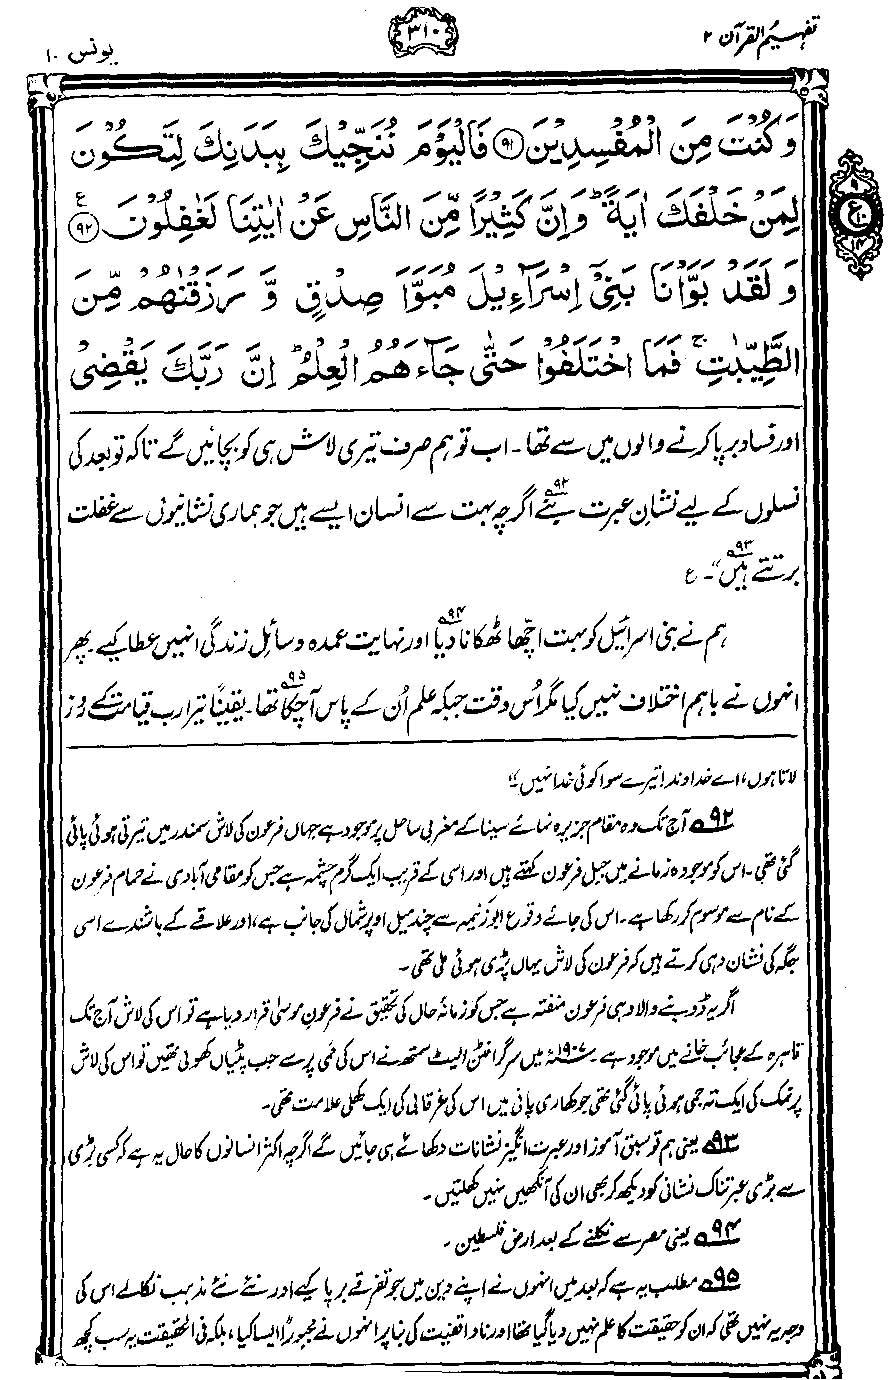 تفہیم القرآن ۲
۳۱۰
یونس ۱۰
وَكُنْتَ مِنَ الْمُفْسِدِيْنَ ۹۱ فَالْيَوْمَ نُنَجِّيْكَ بِبَدَنِكَ لِتَكُوْنَ
لِمَنْ خَلْفَكَ اٰيَةً ؕ وَاِنَّ كَثِيْرًا مِّنَ النَّاسِ عَنْ اٰيٰتِنَا لَغٰفِلُوْنَ ۹۲ ع
وَ لَقَدْ بَوَّاْنَا بَنِيْۤ اِسْرَآءِيْلَ مُبَوَّاَ صِدْقٍ وَّ رَزَقْنٰهُمْ مِّنَ
الطَّيِّبٰتِ ۚ فَمَا اخْتَلَفُوْا حَتّٰى جَآءَهُمُ الْعِلْمُ ؕ اِنَّ رَبَّكَ يَقْضِيْ
اور فساد برپا کرنے والوں میں سے تھا۔ اب تو ہم صرف تیری لاش ہی کو بچائیں گے تاکہ تو بعد کی
نسلوں کے لیے نشانِ عبرت بنے ۹۲ اگرچہ بہت سے انسان ایسے ہیں جو ہماری نشانیوں سے غفلت
برتتے ہیں ۹۳“۔ ع
ہم نے بنی اسرائیل کو بہت اچھا ٹھکانا دیا ۹۴ اور نہایت عمدہ وسائلِ زندگی انہیں عطا کیے۔ پھر
انہوں نے باہم اختلاف نہیں کیا مگر اُس وقت جبکہ علم اُن کے پاس آچکا تھا ۹۵۔ یقیناً تیرا رب قیامت کے روز
لاتا ہوں، اے خداوند! تیرے سوا کوئی خدا نہیں“
۹۲ آج تک وہ مقام جزیرہ نمائے سینا کے مغربی ساحل پر موجود ہے جہاں فرعون کی لاش سمندر میں تیرتی ہوئی پائی
گئی تھی۔ اس کو موجودہ زمانے میں جبل فرعون کہتے ہیں اور اسی کے قریب ایک گرم چشمہ ہے جس کو مقامی آبادی نے حمام فرعون
کے نام سے موسوم کر رکھا ہے۔ اس کی جائے وقوع ابو زنیمہ سے چند میل اوپر شمال کی جانب ہے، اور علاقے کے باشندے اسی
جگہ کی نشان دہی کرتے ہیں کہ فرعون کی لاش یہاں پڑی ہوئی ملی تھی۔
اگر یہ ڈوبنے والا وہی فرعون منفتہ ہے جس کو زمانۂ حال کی تحقیق نے فرعونِ موسیٰ قرار دیا ہے تو اس کی لاش آج تک
قاہرہ کے عجائب خانے میں موجود ہے۔ ۱۹۰۷ء میں سر گرافٹن الیٹ سمتھ نے اس کی ممی پر سے جب پٹیاں کھولی تھیں تو اس کی لاش
پر نمک کی ایک تہ جمی ہوئی پائی گئی تھی جو کھاری پانی میں اس کی غرقابی کی ایک کھلی علامت تھی۔
۹۳ یعنی ہم تو سبق آموز اور عبرت انگیز نشانات دکھائے ہی جائیں گے اگرچہ اکثر انسانوں کا حال یہ ہے کہ کسی بڑی
سے بڑی عبرتناک نشانی کو دیکھ کر بھی ان کی آنکھیں نہیں کھلتیں۔
۹۴ یعنی مصر سے نکلنے کے بعد ارضِ فلسطین۔
۹۵ مطلب یہ ہے کہ بعد میں انہوں نے اپنے دین میں جو تفرقے برپا کیے اور نئے نئے مذہب نکالے اس کی
وجہ یہ نہیں تھی کہ ان کو حقیقت کا علم نہیں دیا گیا تھا اور ناواقفیت کی بنا پر انہوں نے مجبوراً ایسا کیا، بلکہ فی الحقیقت یہ سب کچھ
۹
ع
۱۰
۱۴